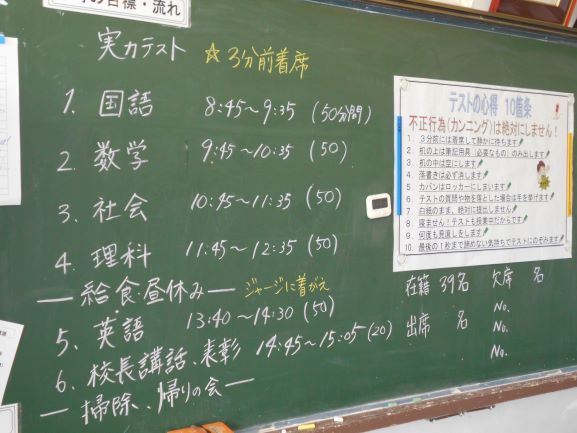 の目標・流れ
実力テスト ☆3分前着席
1. 国語 8:45～9:35 (50分間)
2. 数学 9:45～10:35 (50)
3. 社会 10:45～11:35 (50)
4. 理科 11:45～12:35 (50)
― 給食・昼休み ― ジャージに着がえ
5. 英語 13:40～14:30 (50)
6. 校長講話、表彰 14:45～15:05 (20)
― 掃除、帰りの会 ―
テストの心得 10箇条
不正行為(カンニング)は絶対にしません!
1. 3分前には着席して静かに待ちます
2. 机の上は筆記用具(必要なもの)のみ出します
3. 机の中は空にします
4. 落書きは必ず消します
5. カバンはロッカーにしまいます
6. テストの質問や物を落とした場合は手を挙げます
7. 白紙のまま、絶対に提出しません
8. 寝ません!テストも授業中だからです
9. 何度も見直しをします
10. 最後の1秒まで諦めない気持ちでテストにのぞみます
在籍 39名 欠席 名
出席 名 No.
No.
No.